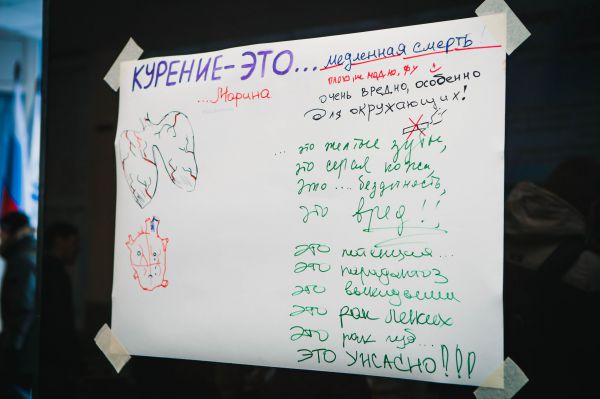 КУРЕНИЕ-ЭТО... медленная смерть
...Марина
плохо, не надо, фу
очень вредно, особенно
для окружающих!
... это желтые зубы,
это серая кожа,
это .... бездетность,
это вред!!,
это
это парадантоз
это выкидыши
это рак легких
это рак губ...
ЭТО УЖАСНО!!!